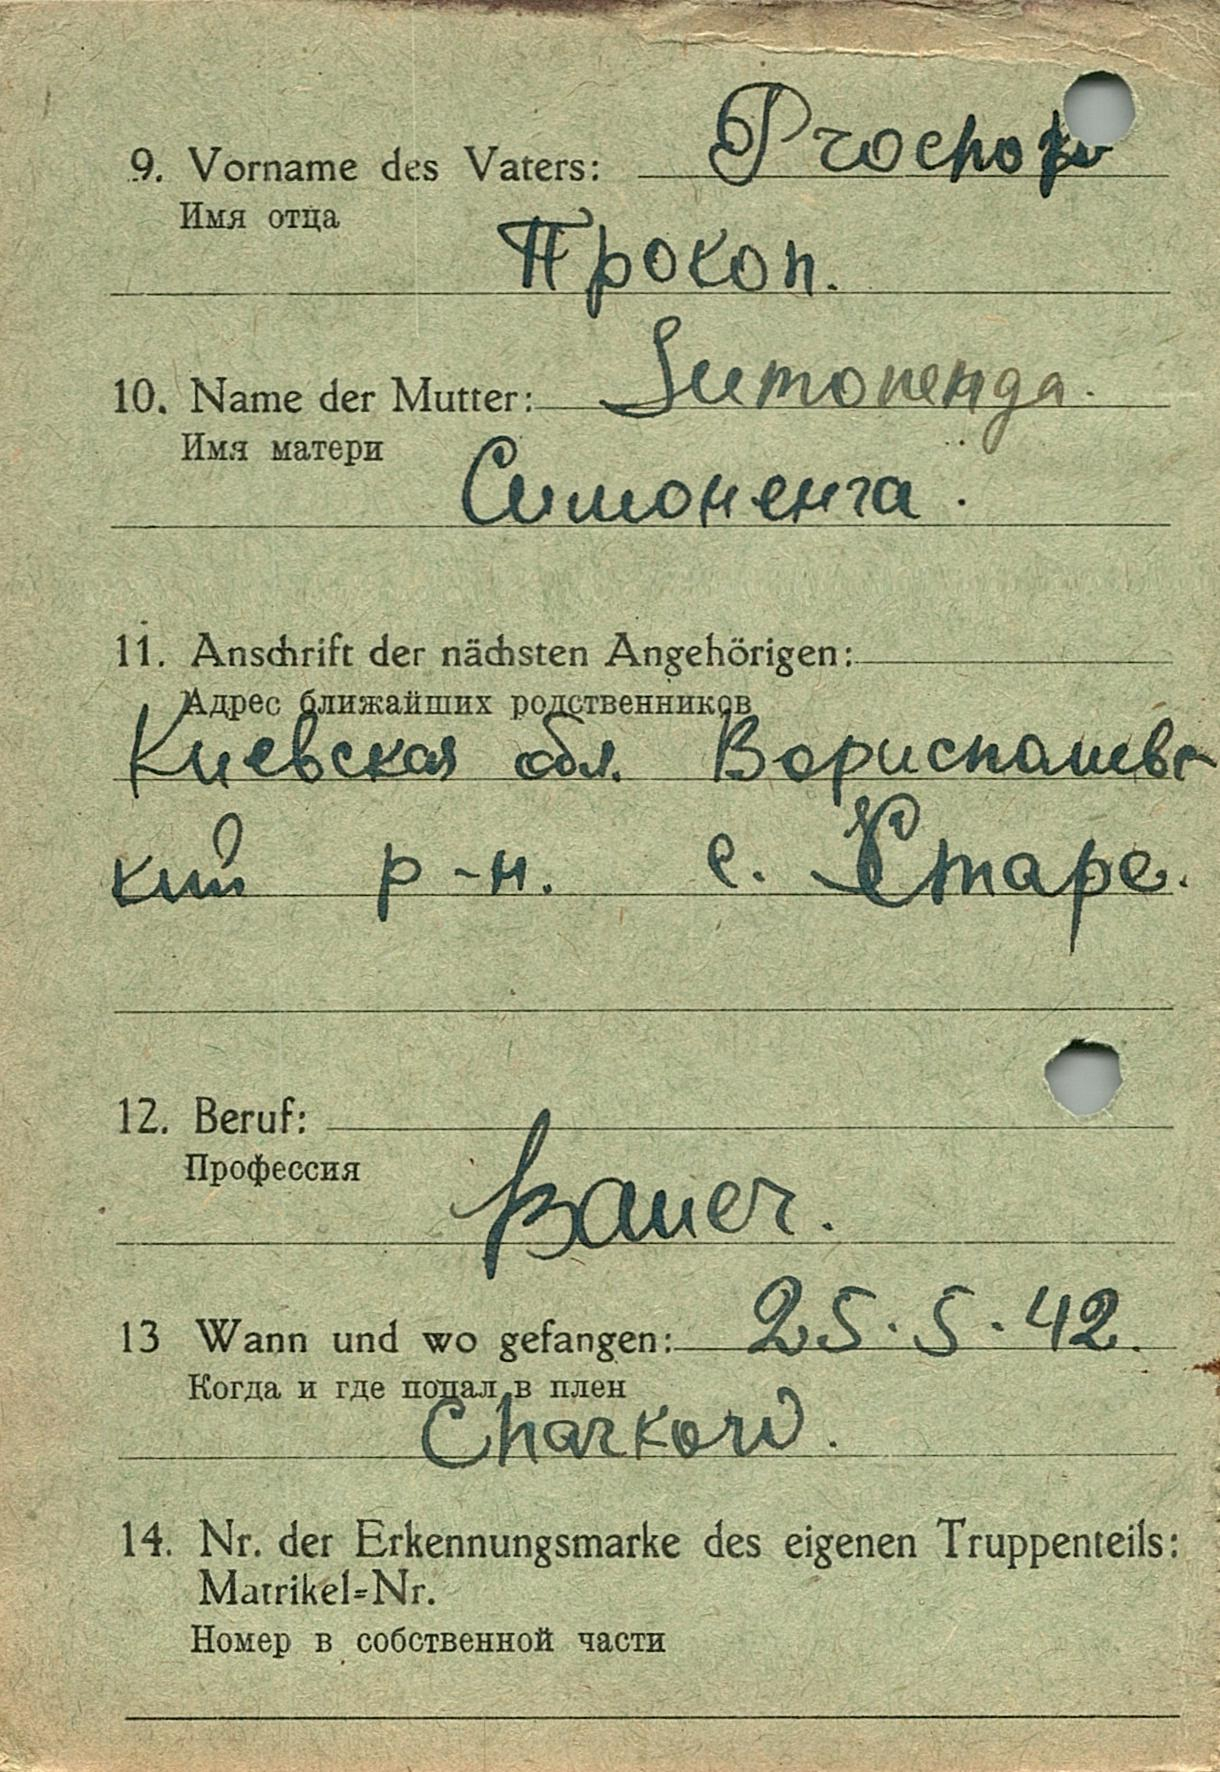 9. Vorname des Vaters:
Имя отца
Прокоп.
10. Name der Mutter: Simonenga.
Имя матери
Симоненга.
11. Anschrift der nächsten Angehörigen:
Адрес ближайших родственников
Киевская обл. Вориспол
кий р-н. с. Старе.
12. Beruf:
Профессия
Bauer.
13 Wann und wo gefangen: 25.5.42.
Когда и где попал в плен
Charkow.
14. Nr. der Erkennungsmarke des eigenen Truppenteils:
Matrikel=Nr.
Номер в собственной части